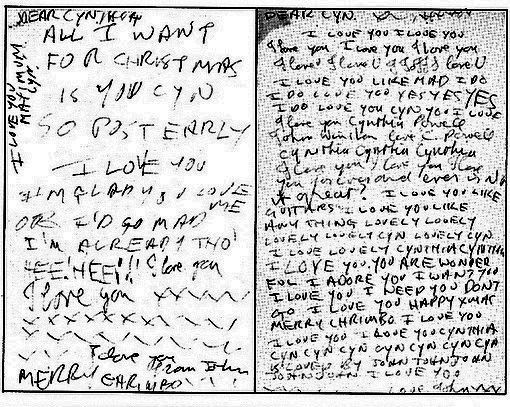 DEAR CYNTHIA
ALL I WANT
FOR CHRISTMAS
IS YOU CYN
SO POST EARLY
I LOVE YOU
I'M GLAD YOU LOVE
ME
OR I'D GO MAD
I'M ALREADY THO'
HEE! HEE!!! I love you
I love you xxxxx
I love you
from John
MERRY CHRIMBO
I LOVE YOU
MAXIMUM
CYN
DEAR CYN
I LOVE YOU I LOVE YOU
I love you I love you I love you
I LOVE YOU LIKE MAD I DO
I DO LOVE YOU YES YES YES
I DO LOVE YOU CYN YOU I LOVE
I love you Cynthia Powell
John Winston C. Powell
Cynthia Cynthia Cynthia
I love you I love you I love
you forever and ever
great? I LOVE YOU LIKE
GUITARS I LOVE YOU LIKE
ANY THING LOVELY LOVELY
LOVELY LOVELY CYN LOVELY CYN
I LOVE LOVELY CYNTHIA CYNTHIA
I LOVE YOU. YOU ARE WONDER
FUL I ADORE YOU I WANT YOU
I LOVE YOU I NEED YOU DONT
GO I LOVE YOU HAPPY XMAS
MERRY CHRIMBO I LOVE YOU
I LOVE YOU I LOVE YOU CYNTHIA
CYN CYN CYN CYN CYN CYN CYN
IS LOVED BY JOHN JOHN JOHN
JOHN JOHN I LOVE YOU
LOVE John xx